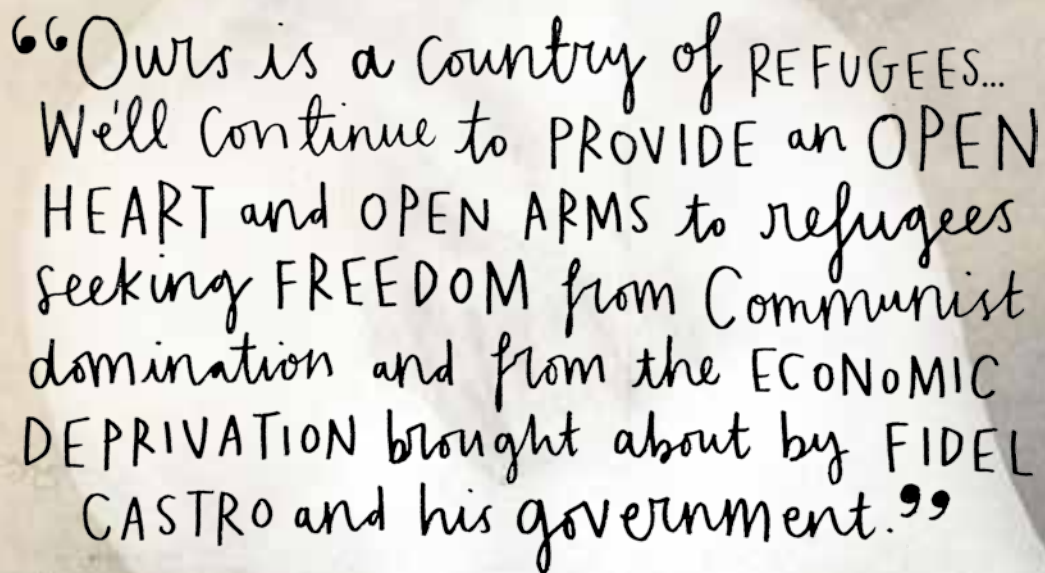 “Ours is a country of REFUGEES...
We'll continue to PROVIDE an OPEN
HEART and OPEN ARMS to refugees
seeking FREEDOM from Communist
domination and from the ECONOMIC
DEPRIVATION brought about by FIDEL
CASTRO and his government.”